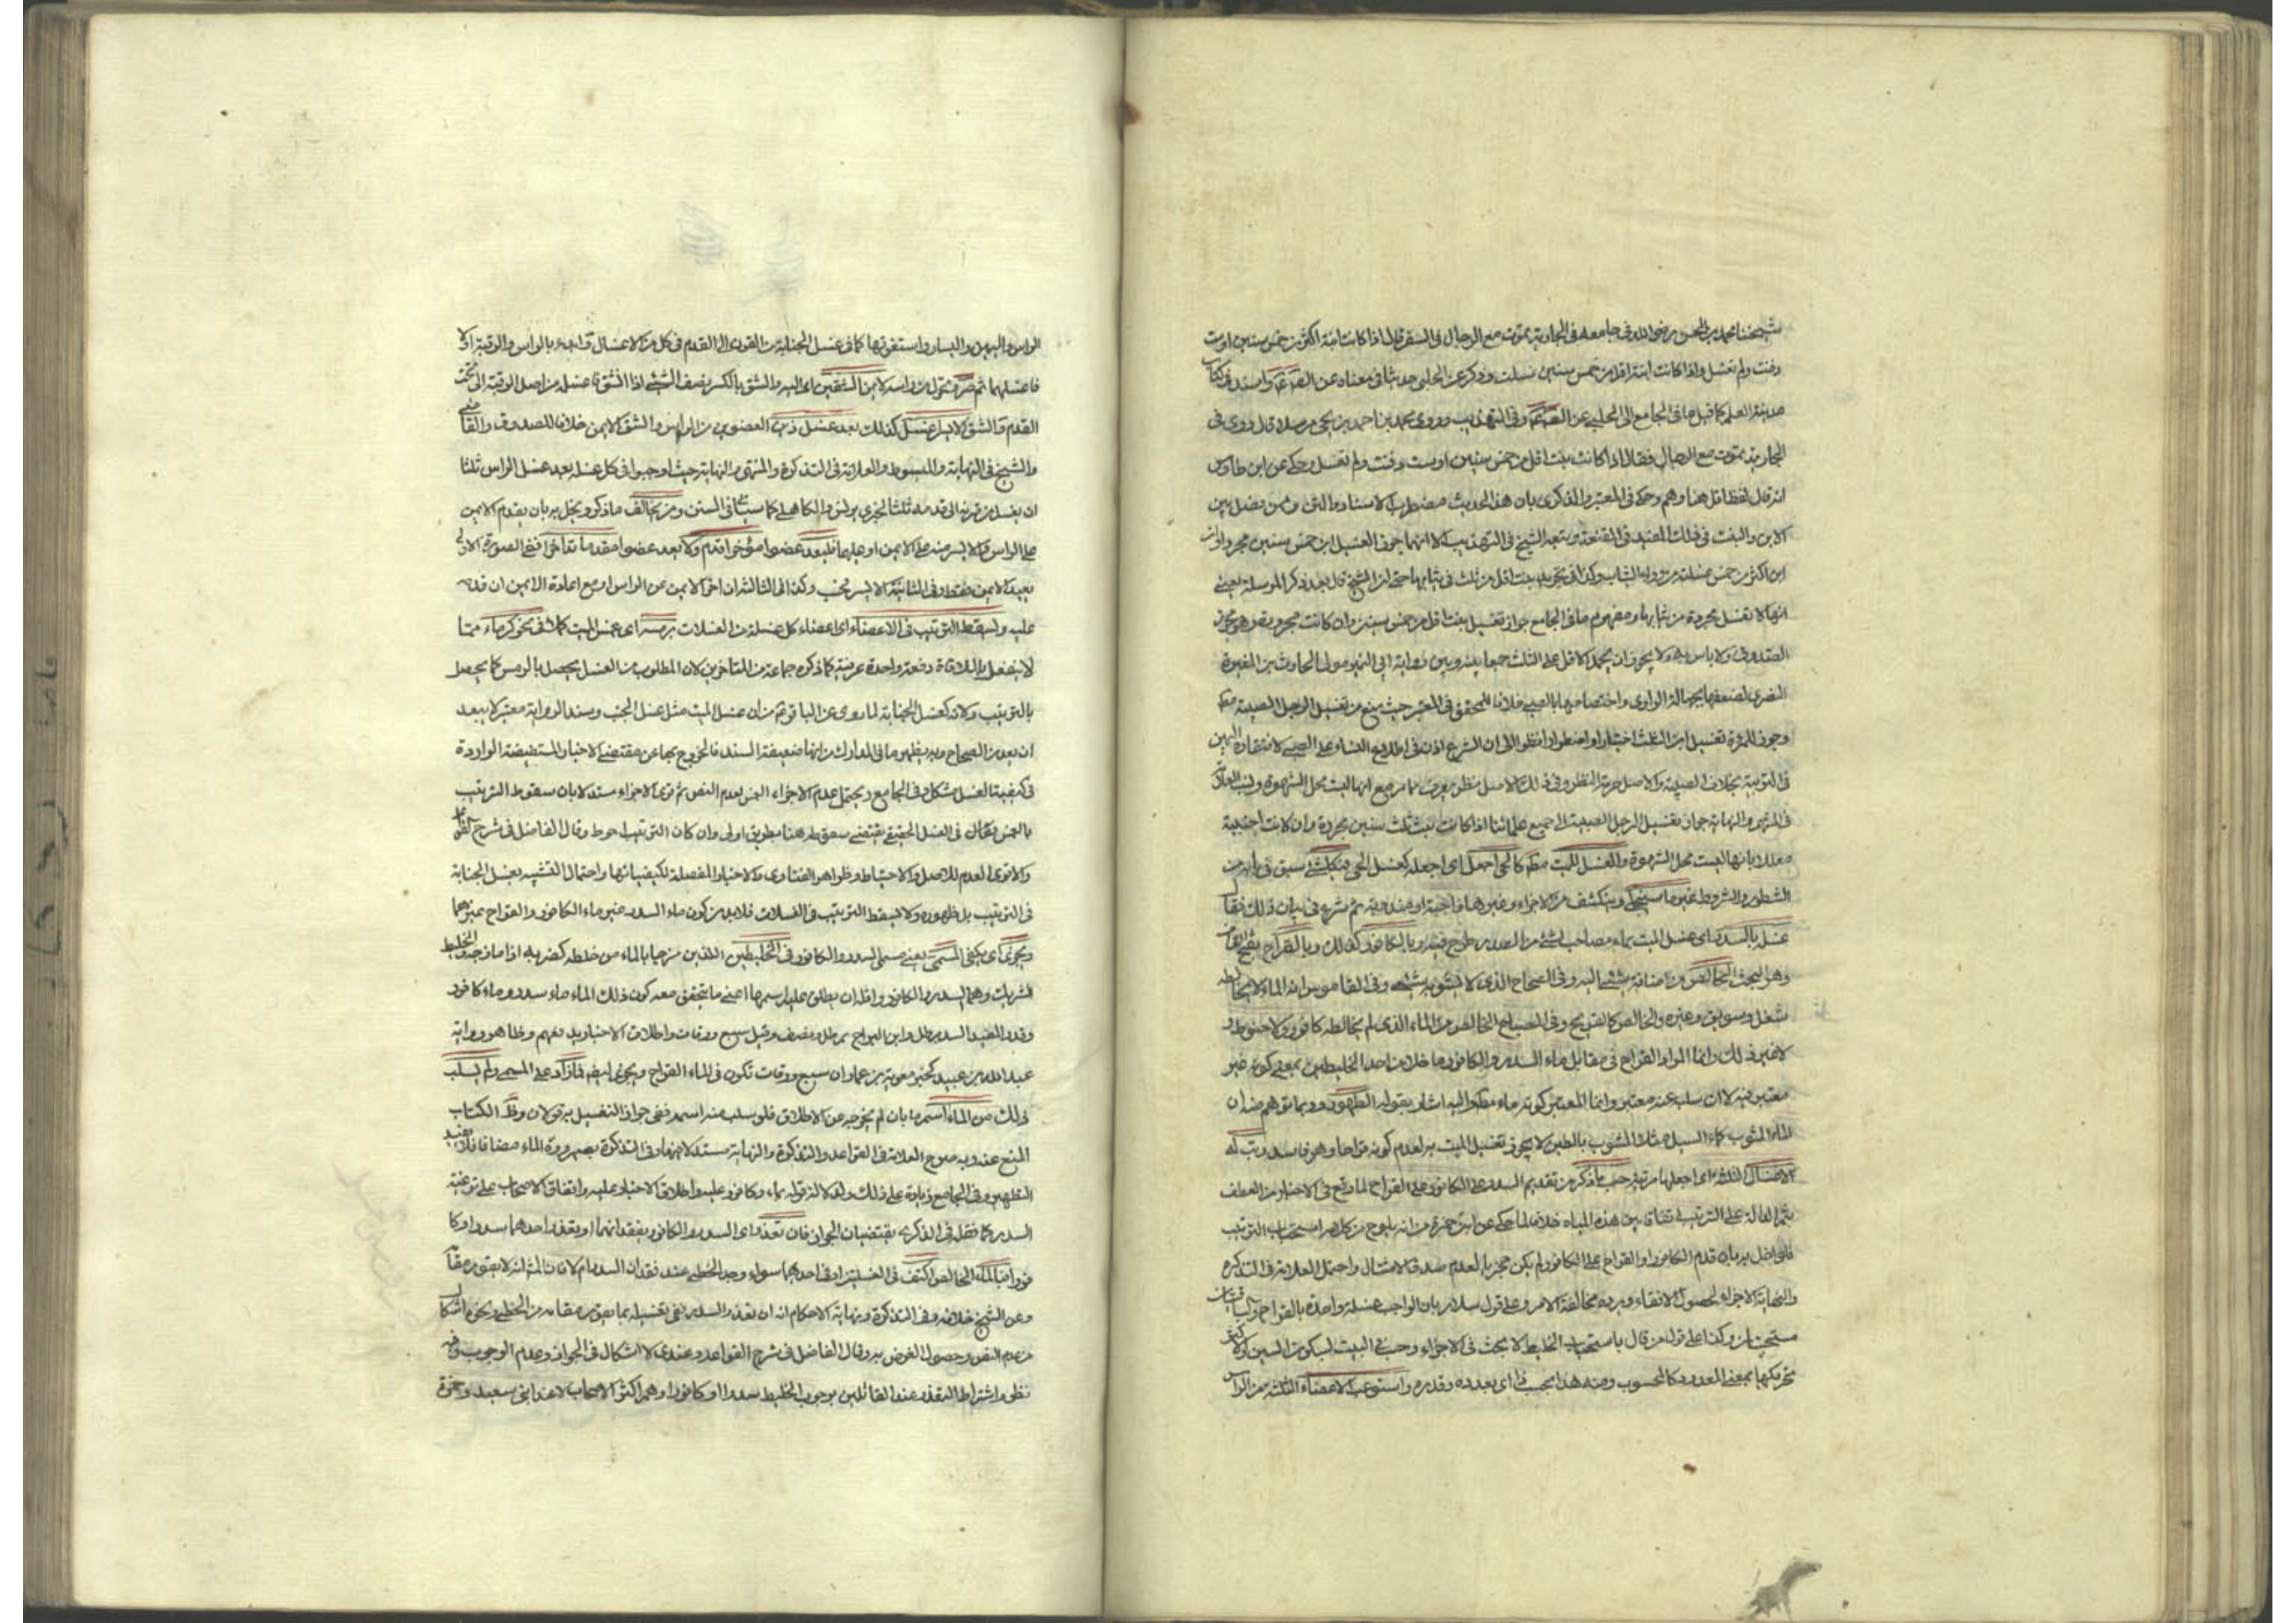 شيخنا محمد بن الحسن رضي الله في جامعه في الجارية تموت مع الرجال في السفر قال اذا كانت ابنة اكثر من خمس سنين او ست
دفنت ولم تغسل واذا كانت ابنة اقل من خمس سنين غسلت وذكر عن الحلبي حديثا في معناه عن الصم واسند في كتاب
مدينة العلم كما قيل ما في الجامع الى الحلبي عن الصم وفي التهذيب وروى محمد بن احمد بن يحيى مرسلا قال روى في
الجارية تموت مع الرجال فقال اذا كانت بنت اقل من خمس سنين او ست دفنت ولم تغسل وحكى عن ابن طاوس
انه قال لفظ اقل هنا وهم وحكى في المعتبر والذكرى بان هذا الحديث مضطرب الاسناد والمتن وممن فصل بين
الابن والبنت في ذلك المفيد في المقنعة وتبعه الشيخ في التهذيب الا انهما جوزا تغسيل ابن خمس سنين مجردا وان
ابن اكثر من خمس غسلنه من وراء الثياب وكذا في تجريد بنت اقل من ثلث في ثيابها حتى ان الشيخ قال بعد ذكر المرسلة يعني
انها لا تغسل مجردة من ثيابها ومفهوم ما في الجامع جواز تغسيل بنت اقل من خمس سنين وان كانت مجردة وهو مختار
الصدوق ولا باس به ولا يجوز ان يحمل الاقل على الثلث جمعا بينه وبين رواية ابي النمير مولى الحارث بن المغيرة
النصري لضعفها بجهالة الراوي واختصاصها بالصبي خلافا للمحقق في المعتبر حيث منع من تغسيل الرجل الصبية مط
وجوز للمرءة تغسيل ابن الثلث اختيارا واضطرارا نظرا الى ان الشرع اذن في اطلاع النساء على الصبي لافتقاره اليهن
في التربية بخلاف الصبية والاصل حرمة النظر وفي ذلك الاصل نظر يعرف مما مر مع انها ليست محل الشهوة ونسب العلامة
في المنتهى والنهاية جواز تغسيل الرجل الصبية الى جميع علمائنا اذا كانت بنت ثلث سنين مجردة وان كانت اجنبية
معللا بانها ليست محل الشهوة والغسل للميت مط كالحي اجعل اي اجعله كغسل الحي في كل شيء سبق في بابه من
الشطور والشروط غير ما سيحكى وينكشف من الاجزاء وغيرها واجبة او مندوبة ثم شرع في بيان ذلك فقال
غسله بالسدر اي غسل الميت بماء مصاحب لشيء من السدر طرح فيه وبالكافور كذلك وبالقراح بفتح القاف
وهو البحت الخالص من اضافة شيء اليه وفي الصحاح الذي لا يشوبه شيء وفي القاموس انه الماء لا يخالطه
ثفل وسويق وغيره والخالص كالقريح وفي المصباح الخالص من الماء الذي لم يخالطه كافور ولا حنوط و
لا غير ذلك وانما المراد القراح في مقابل ماء السدر والكافور ما خلا من احد الخليطين بمعنى كونه غير
معتبر فيه لا ان سلبه عنه معتبر وانما المعتبر كونه ماء مط واليه اشار بقوله الطهور وربما توهم منه ان
الماء المشوب كماء السيل مثلا المشوب بالطين لا يجوز تغسيل الميت به لعدم كونه قراحا وهو فاسد ورتب له
الاغسال الثلثة اي اجعلها مرتبة حسب ما ذكر من تقديم السدر على الكافور وعلى القراح لما وقع في الاخبار من العطف
بثم الدالة على الترتيب في تفاق بين هذه المياه خلافا لما حكى عن ابن حمزة من انه يلوح من كلامه استحباب الترتيب
فلو اخل به بان قدم الكافور او القراح على الكافور لم يكن مجزيا لعدم صدق الامتثال واحتمل العلامة في التذكرة
والنهاية الاجزاء لحصول الانقاء ويرده مخالفة الامر وعلى قول سلار بان الواجب غسلة واحدة بالقراح
مستحبتان وكذا على قول من قال باستحباب الخليط لا بحث في الاجزاء وحسب في البيت بسكون السين ولا كثر
تحريكها بمعنى المعدود كالمحسوب ومنه هذا بحسب ذا اي بعدده وقدره واستوعب الاعضاء الثلثة من الراس
الراس واليمين واليسار واستغرقها كما في غسل الجنابة من القرن الى القدم في كل من الاغسال وابدء بالراس والرقبة اولا
فاغسلهما ثم من راسه لايمن الشقين اي اليه والشق بالكسر نصف الشيء اذا انشق فاغسله من اصل الرقبة الى تحت
القدم والشق الايسر اغسل كذلك بعد غسل ذين العضوين من الراس والشق الايمن خلافا للصدوق والقاضي
والشيخ في النهاية والمبسوط والعلامة في التذكرة والمنتهى والنهاية حيث اوجبوا في كل غسلة بعد غسل الراس ثلثا
ان يغسل من قرنه الى قدمه ثلثا لخبري يونس والكاهلي كما سيأتي في السنن ومن يخالف ما ذكر ويخل به بان يقدم الايمن
على الراس والايسر منه على الايمن او عليهما فليعد عضوا مؤخرا قدم ولا يعد عضوا مقدما تأخرا ففي الصورة الاولى
يعيد الايمن فقط وفي الثانية الايسر فحسب وكذا في الثالثة ان اخر الايمن عن الراس او مع اعادة الايمن ان قدمه
عليه ويسقط الترتيب في الاعضاء اي اعضاء كل غسلة من الغسلات برمسه اي غسل الميت كملا في نحو كر ماء مما
لا ينفعل بالملاقاة دفعة واحدة عرفية كما ذكره جماعة من المتاخرين لان المطلوب من الغسل يحصل بالرمس كما يحصل
بالترتيب ولانه كغسل الجنابة لما روى عن الباقر ع من ان غسل الميت مثل غسل الجنب وسند الرواية معتبر لا يبعد
ان يعد من الصحاح وبه يظهر ما في المدارك من انها ضعيفة السند فالخروج بها عن مقتضى الاخبار المستفيضة الواردة
في كيفية الغسل مشكل وفي الجامع ويحتمل عدم الاجزاء لعدم النص ثم قوى الاجزاء مستدلا بان سقوط الترتيب
بالرمس في الغسل الحقيقي يقتضي سقوطه هنا بطريق اولى وان كان الترتيب احوط وقال الفاضل في شرح القواعد
والاقوى العدم للاصل والاحتياط وظواهر الفتاوى والاخبار المفصلة لكيفياتها واحتمال التشبيه بغسل الجنابة
في الترتيب بل ظهوره ولا يسقط الترتيب في الغسلات فلابد من كون ماء السدر غير ماء الكافور والقراح غيرهما
ويجزى اي يكفي المسمى يعني مسمى السدر والكافور في الخليطين اللذين مزجا بالماء من خلطه كضربه اذا مازجه والخليط
الشريك وهما السدر والكافور واقله ان يطلق عليه اسمهما اعني ما يتحقق معه كون ذلك الماء ماء سدر وماء كافور
وقدر المفيد السدر برطل وابن البراج برطل ونصف وقيل سبع ورقات واطلاق الاخبار يدفعهم وظاهر رواية
عبد الله بن عبيد كخبر معوية بن عمار ان سبع ورقات تكون في الماء القراح ويجزى ايضا ما زاد على المسمى ولم يسلب
ذلك من الماء اسمه بان لم يخرجه عن الاطلاق فلو سلب منه اسمه ففي جواز التغسيل به قولان وظ الكتاب
المنع عنه وبه صرح العلامة في القواعد والتذكرة والنهاية مستدلا منها في التذكرة بصيرورة الماء مضافا فلا يفيد
التطهير وفي الجامع زيادة على ذلك ولدلالة قوله بماء وكافور عليه واطلاق الاخبار عليه واتفاق الاصحاب على ترغية
السدر كما نقله في الذكرى يقتضيان الجواز فان تعذرا اي السدر والكافور بفقدانهما او بفقد احدهما سدرا او كا
فورا فبالماء الخالص اكتف في الغسلتين او في احدهما سواء وجد الخطمي عند فقدان السدر ام لا فان المثل انه لا يقوم مقامه
وعن الشيخ خلافه وفي التذكرة ونهاية الاحكام انه ان تعذر السدر ففي تغسيله بما يقوم مقامه من الخطمي ونحوه اشكال
من عدم النص وحصول الغرض به وقال الفاضل في شرح القواعد وعندي لا اشكال في الجواز وعدم الوجوب وفيه
نظر واشتراط التعذر عند القائلين بوجوب الخليط سدرا او كافورا وهم اكثر الاصحاب لا عند ابني سعيد وحمزة